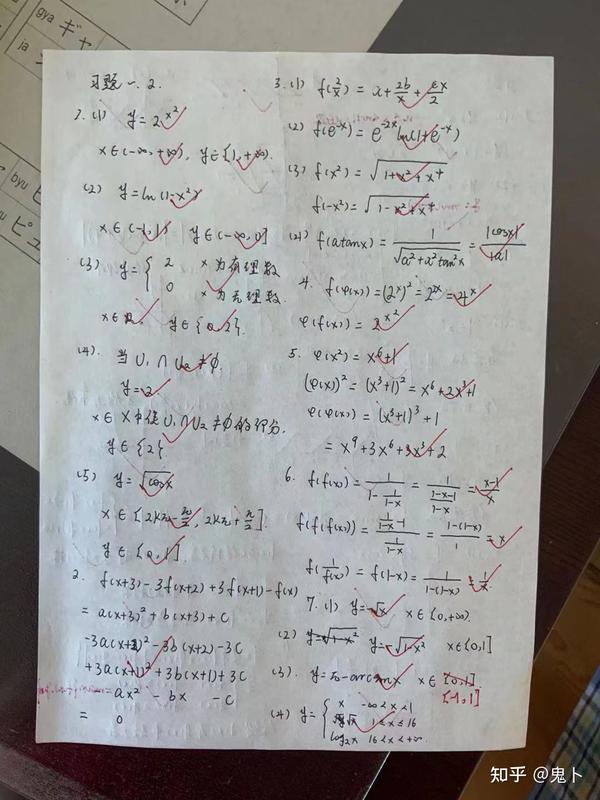 gya ギャ
ja
byu ビ
ピュ
习题一.2.
1. (1) y=2^{x^2}
x∈(-∞,+∞), y∈[1,+∞).
(2) y=ln(1-x²)
x∈(-1,1) y∈(-∞,0]
(3) y={ 2 x为有理数
0 x为无理数
y∈{0,2}.
(4). 当U₁∩U₂≠φ.
y=2
x∈X中使U₁∩U₂≠φ的部分.
y∈{2}.
(5) y=√cosx
x∈[2kπ-π/2, 2kπ+π/2].
y∈[0,1].
2. f(x+3)-3f(x+2)+3f(x+1)-f(x)
= a(x+3)²+b(x+3)+c
-3a(x+2)²-3b(x+2)-3c
+3a(x+1)²+3b(x+1)+3c
-ax² -bx -c
= 0
3. (1) f(2/x) = a+2b/x+cx/2
(2) f(e^{-x})=e^{-2x}ln(1+e^{-x})
(3) f(x²)=√(1+x²+x⁴)
f(-x²)=√(1-x²+x⁴)
(4) f(atanx)=1/√(a²+a²tan²x)=|cosx|/|a|
4. f(φ(x))=(2^x)²=2^{2x}=4^x
φ(f(x))=2^{x²}
5. φ(x²)=x⁶+1
(φ(x))²=(x³+1)²=x⁶+2x³+1
φ(φ(x))=(x³+1)³+1
=x⁹+3x⁶+3x³+2
6. f(f(x))=1/(1-1/(1-x))=1/((1-x-1)/(1-x))=(x-1)/x
=(1-(1-x))/1=x
f(1/f(x))=f(1-x)=1/(1-(1-x))=1/x
7. (1) y=-√x x∈[0,+∞).
(2) y=√(1-x²) y=-√(1-x²) x∈[0,1]
(3). y=π-arccosx x∈[0,1]
[-1,1]
(4) y={ x -∞<x<1
√x 1≤x≤16
log₂x 16<x<+∞.
知乎 @鬼卜